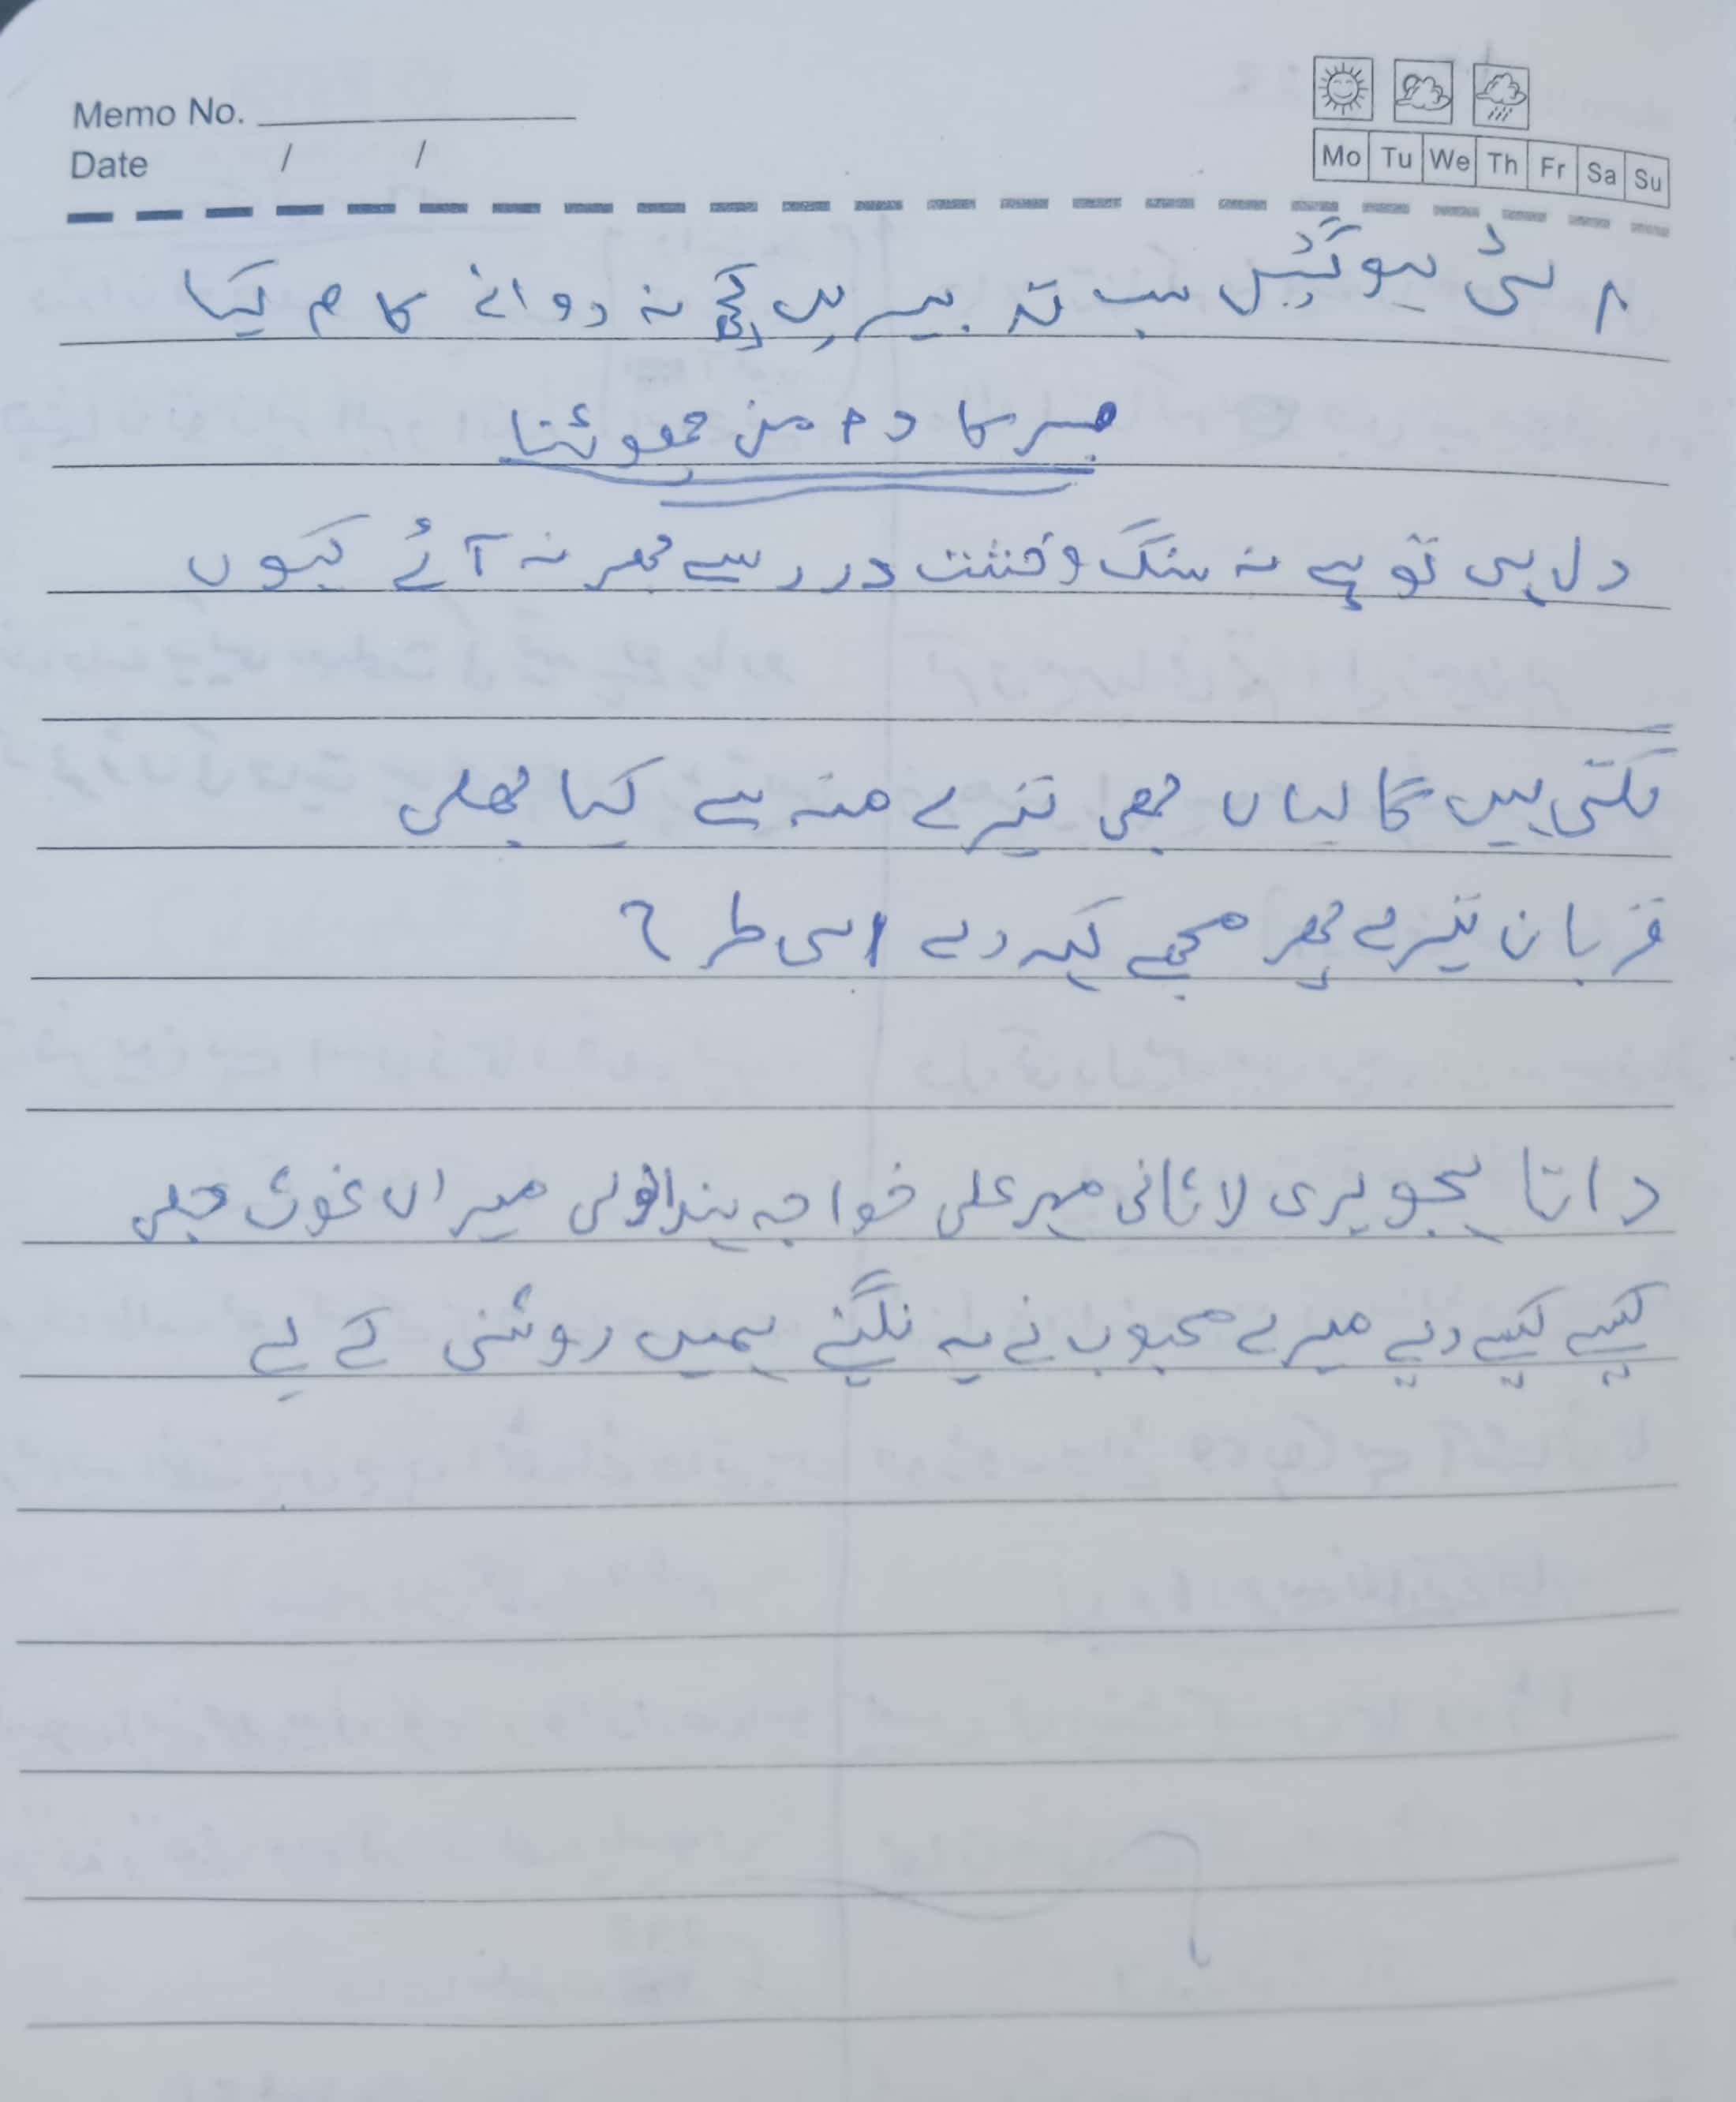 Memo No.
Date / /
Mo Tu We Th Fr Sa Su
ہو گئیں سب تدبیریں کچھ نہ دوانے کام کیا
میر کا دم من
دل ہی تو ہے نہ سنگ و خشت درد سے بھر نہ آئے کیوں
لگتی ہیں گالیاں بھی تیرے منہ سے کیا بھلی
قربان تیرے پھر مجھے کہہ دے اسی طرح
داتا ہجویری لاثانی مہر علی خواجہ ہندالولی میراں غوث جلی
کیسے کیسے دیے میرے محبوب نے یہ نگینے ہمیں روشنی کے لے